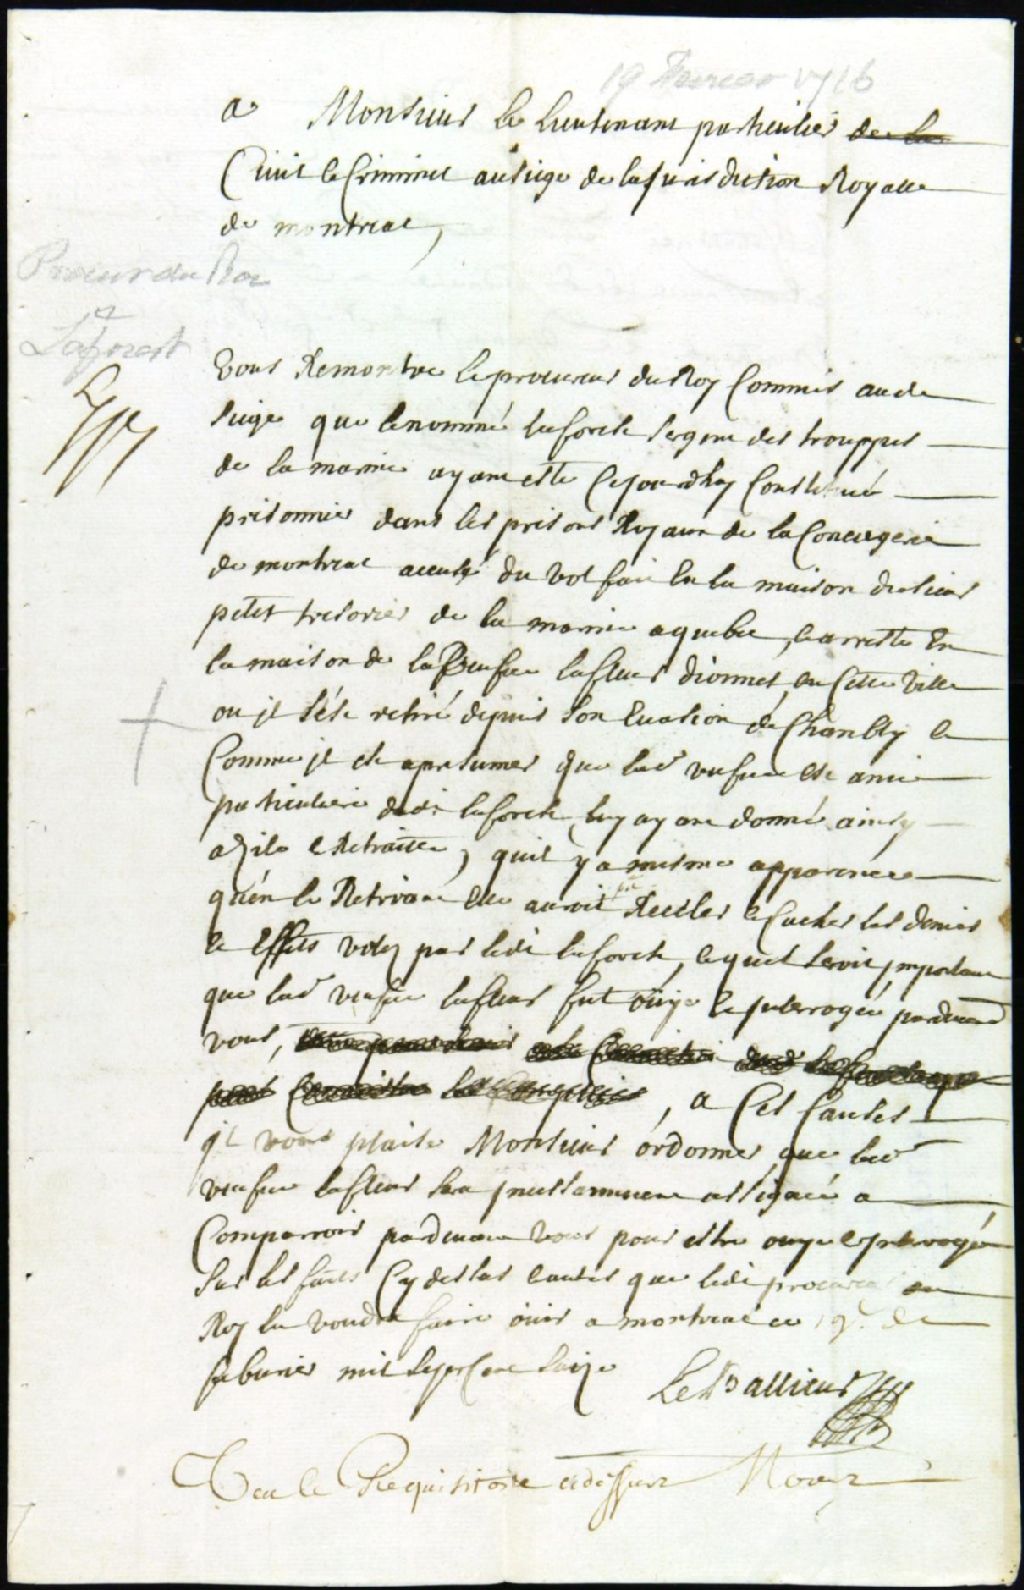 19 février 1716
A Monsieur le lieutenant particulier de la
Civil et Criminel au siege de la Jurisdiction Royalle
de montreal,
Procur du Roi
Laforest
Vous Remontre le procureur du Roy Commis aud
siege que le nommé laforest sergent des trouppes
de la marine ayant esté Cejourdhuy Constitué
prisonnier dans les prisons Royaux de la Conciergerie
de montreal accusé du vol fait en la maison du sieur
petit tresorier de la marine a quebec, et arresté En
la maison de la veufve lafleur dionnet en Cette Ville
ou il s'est retiré depuis son Evasion de Chambly et
Comme il est a presumer que lad veufve est amie
particuliere dudit laforest, luy ayant donné ainsy
azile et Retraitte, quil y a mesme apparence
qu'en le Retirant elle auroit pu Receller et Cacher les deniers
et Effets volez par ledit laforest, lequel seroit important
que lad veufve lafleur fut ouÿe et interrogée pardevant
vous, , a Ces Causes
il vous plaise Monsieur ordonner que lad
veufve lafleur sera incessamment assignée a
Comparroir pardevant vous pour estre ouye et interrogée
sur les faits Cy dessus et autres que ledit procureur du
Roy lu voudra faire ouir a montreal ce 19e de
febvrier mil sept Cent seize
Le Pallieur
Veu le Requisitoire cidessus Nous